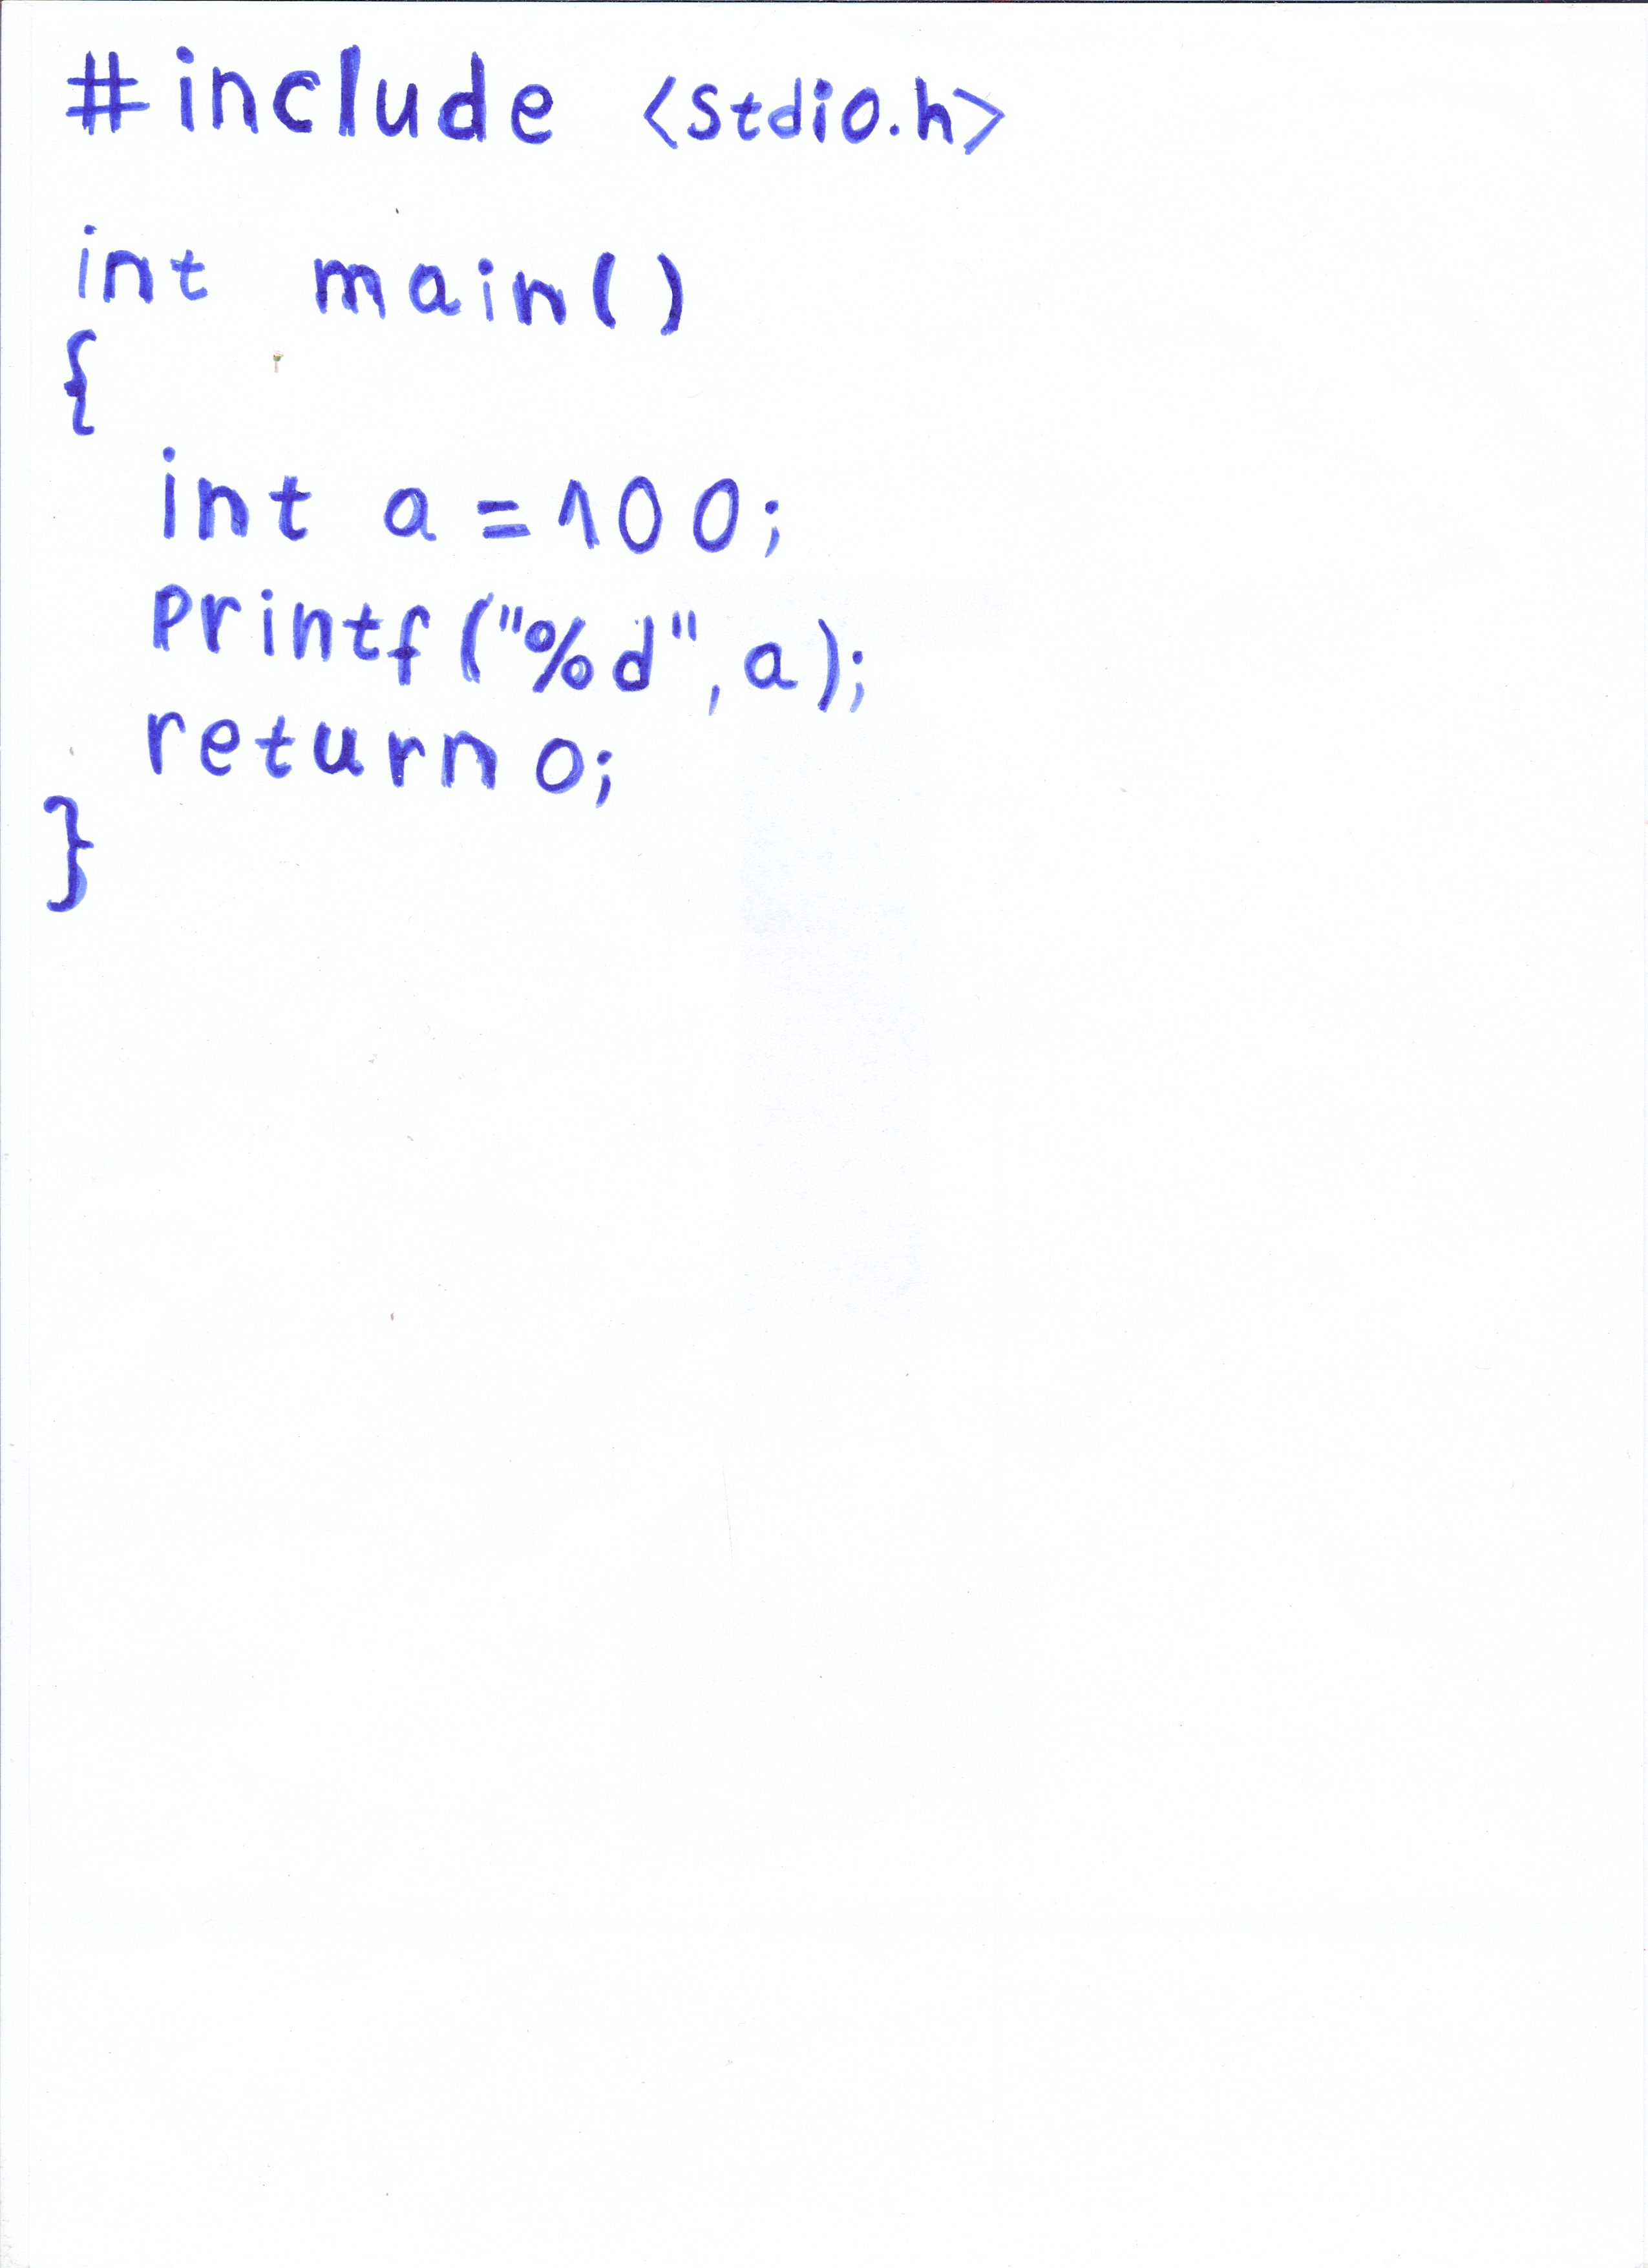 #include <stdio.h>
int main()
{
int a = 100;
printf("%d", a);
return 0;
}